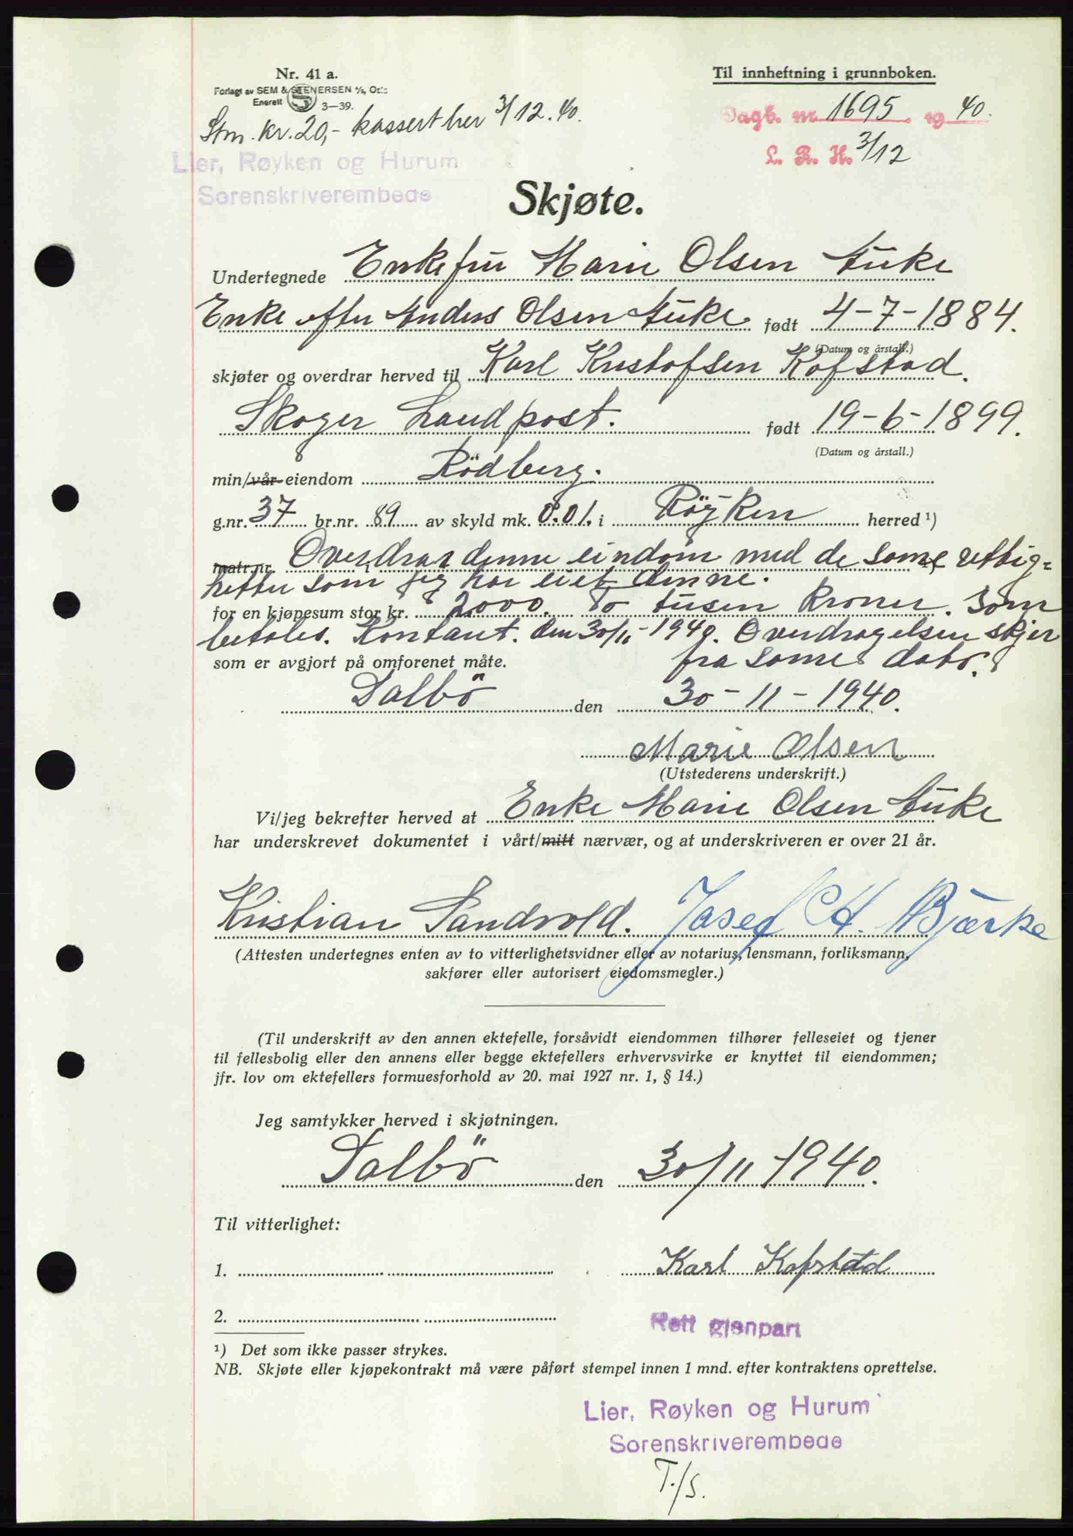 Nr. 41 a.
Til innheftning i grunnboken.
Forlagt av SEM & STENERSEN A/S, Oslo
Enerett 3—39.
Stm. kr. 20,- kassert her 3/12.40.
Dagb. nr. 1695. 1940.
L. R. H. 3/12
Lier, Røyken og Hurum
Sorenskriverembede
Skjøte.
Undertegnede Enkefru Marie Olsen Auke
Enke efter Anders Olsen Auke født 4-7-1884.
(Datum og årstall.)
skjøter og overdrar herved til Karl Kristofsen Kofstad.
Skoger Landpost. født 19-6-1899.
(Datum og årstall.)
min/vår eiendom Rödberg.
g.nr. 37 br.nr. 89 av skyld mk. 0.01. i Röyken herred ¹)
matr.nr. Overdrar denne eiendom med de same rettig=
hetter som jeg har eiet denne.
for en kjøpesum stor kr. 2000. To tusen Kroner. Som
betales. Kontant. den 30/11-1940. Overdragelsen skjer
som er avgjort på omforenet måte. fra same dato.
Dalbö den 30-11-1940.
Marie Olsen
(Utstederens underskrift.)
Vi/jeg bekrefter herved at Enke Marie Olsen Auke
har underskrevet dokumentet i vårt/mitt nærvær, og at underskriveren er over 21 år.
Kristian Sandvold. Josef H. Bjerke
(Attesten undertegnes enten av to vitterlighetsvidner eller av notarius, lensmann, forliksmann,
sakfører eller autorisert eiedomsmegler.)
(Til underskrift av den annen ektefelle, forsåvidt eiendommen tilhører felleseiet og tjener
til fellesbolig eller den annens eller begge ektefellers erhvervsvirke er knyttet til eiendommen;
jfr. lov om ektefellers formuesforhold av 20. mai 1927 nr. 1, § 14.)
Jeg samtykker herved i skjøtningen.
Dalbö den 30/11-1940.
Til vitterlighet:
1. Karl Kofstad
2.
Rett gjenpart
¹) Det som ikke passer strykes.
NB. Skjøte eller kjøpekontrakt må være påført stempel innen 1 mnd. efter kontraktens oprettelse.
Lier, Røyken og Hurum
Sorenskriverembede
T./S.